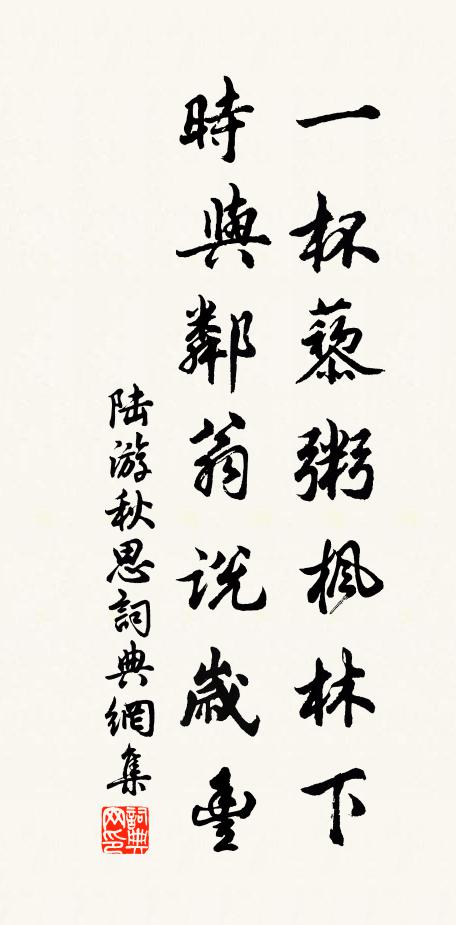 一杯藜粥楓林下
時與鄰翁說歲豐
陆游秋思詞典網集
詞典网印